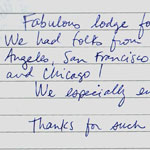 Fabulous lodge fo
We had folks from
Angeles, San Francisco
and Chicago!
We especially en
Thanks for such